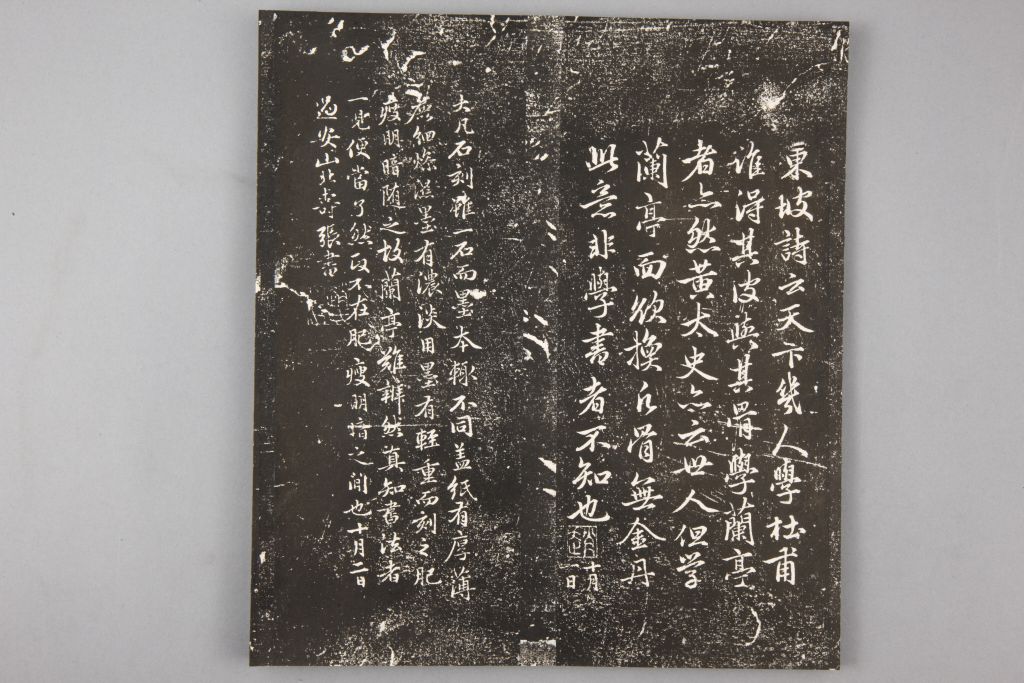 東坡詩云天下幾人學杜甫
誰得其皮與其骨學蘭亭
者亦然黃太史亦云世人但学
蘭亭面欲換凡骨無金丹
此意非學書者不知也
十月一日
大凡石刻雖一石而墨本輙不同盖紙有厚薄
麁細燥濕墨有濃淡用墨有輕重而刻之肥
瘦明暗随之故蘭亭難辨然真知書法者
一見便當了然政不在肥瘦明暗之間也十月二日
過安山北壽張書